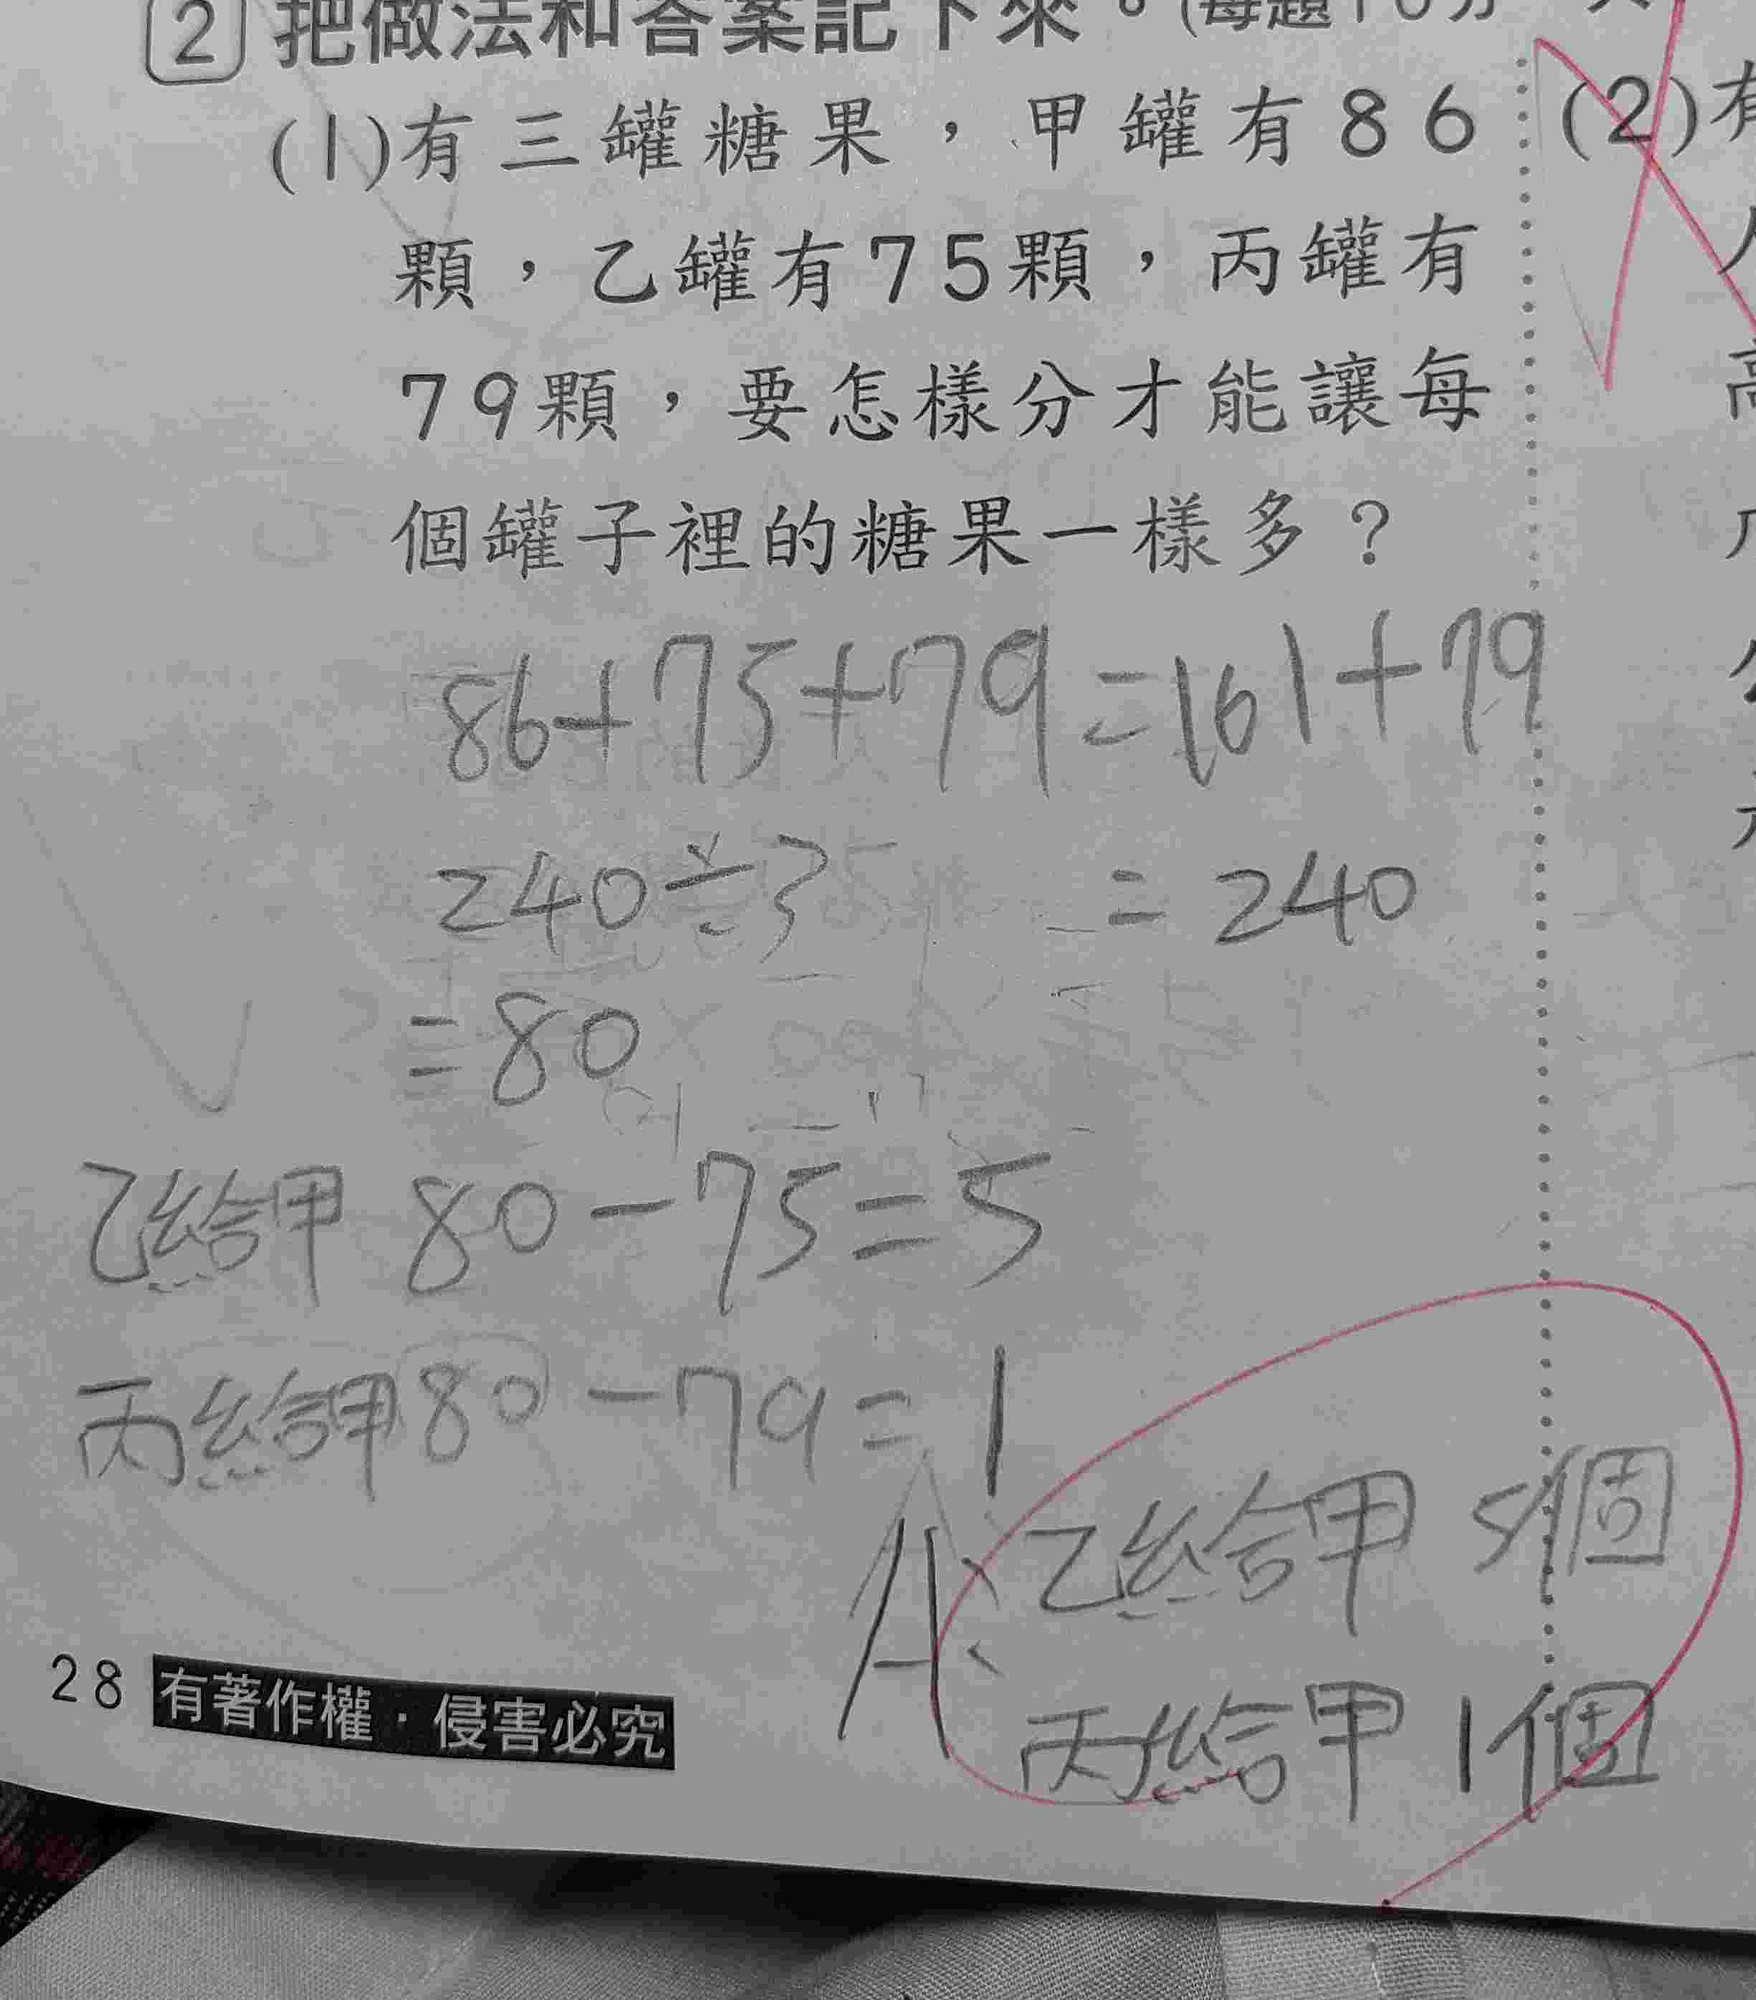 2 把做法和答案記下來。(每題10分
(1)有三罐糖果，甲罐有86
顆，乙罐有75顆，丙罐有
79顆，要怎樣分才能讓每
個罐子裡的糖果一樣多？
86+75+79=161+79
240÷3 =240
=80
乙給甲 80-75=5
丙給甲80-79=1
A:乙給甲 5個
丙給甲 1個
28 有著作權·侵害必究
(2)有